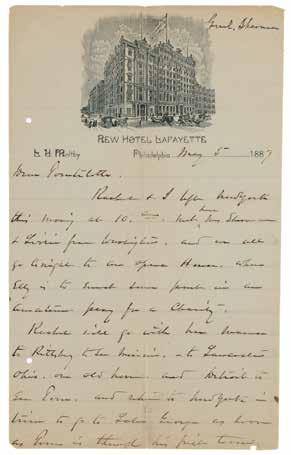 Genl. Sherman
New Hotel Lafayette
L. U. Maltby Philadelphia May 5 1887
Dear
Rachel & I left New York
this morning at 10. met here Mrs Sherman
& Lizzie from Washington. and we all
go tonight to an Opera House. where
Elly is to some part in an
Amateur for a Charity.
Rachel will go with her Mama
to Pittsburg to . - to Lancaster
Ohio. our old home and Detroit to
see . and return to New York in
time to go to Lake George as soon
as is through his